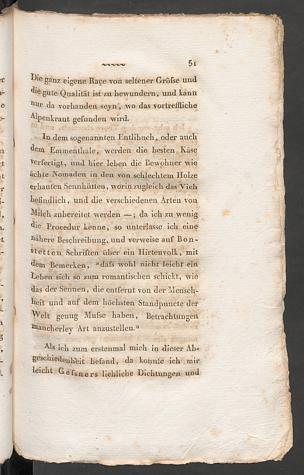 51
Die ganz eigene Raçe von seltener Größe und
die gute Qualität ist zu bewundern, und kann
nur da vorhanden seyn, wo das vortreffliche
Alpenkraut gefunden wird.
In dem sogenannten Entlibuch, oder auch
dem Emmenthale, werden die besten Käse
verfertigt, und hier leben die Bewohner wie
ächte Nomaden in den von schlechtem Holze
erbauten Sennhütten, worin zugleich das Vieh
befindlich, und die verschiedenen Arten von
Milch zubereitet werden —; da ich zu wenig
die Procedur kenne, so unterlasse ich eine
nähere Beschreibung, und verweise auf Bon-
stetten Schriften über ein Hirtenvolk, mit
dem Bemerken, "daß wohl nicht leicht ein
Leben sich so zum romantischen schickt, wie
das der Sennen, die entfernt von der Mensch-
heit und auf dem höchsten Standpuncte der
Welt genug Muße haben, Betrachtungen
mancherley Art anzustellen."
Als ich zum erstenmal mich in dieser Ab-
geschiedenheit befand, da konnte ich mir
leicht Gesners liebliche Dichtungen und